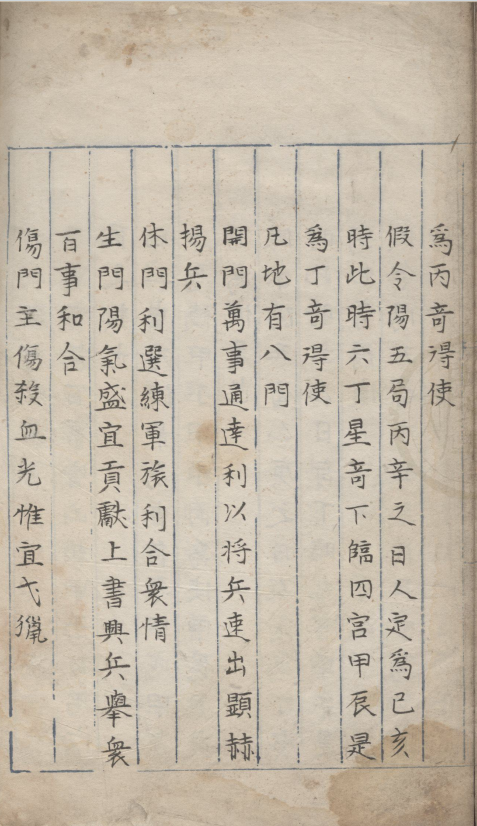 為丙竒得使
假令陽五局丙辛之日人定為己亥
時此時六丁星竒下臨四宫甲辰是
為丁竒得使
凡地有八門
開門萬事通達利以將兵速出顯赫
揚兵
休門利選練軍旅利合衆情
生門陽氣盛宜貢獻上書興兵舉衆
百事和合
傷門主傷殺血光惟宜弋獵